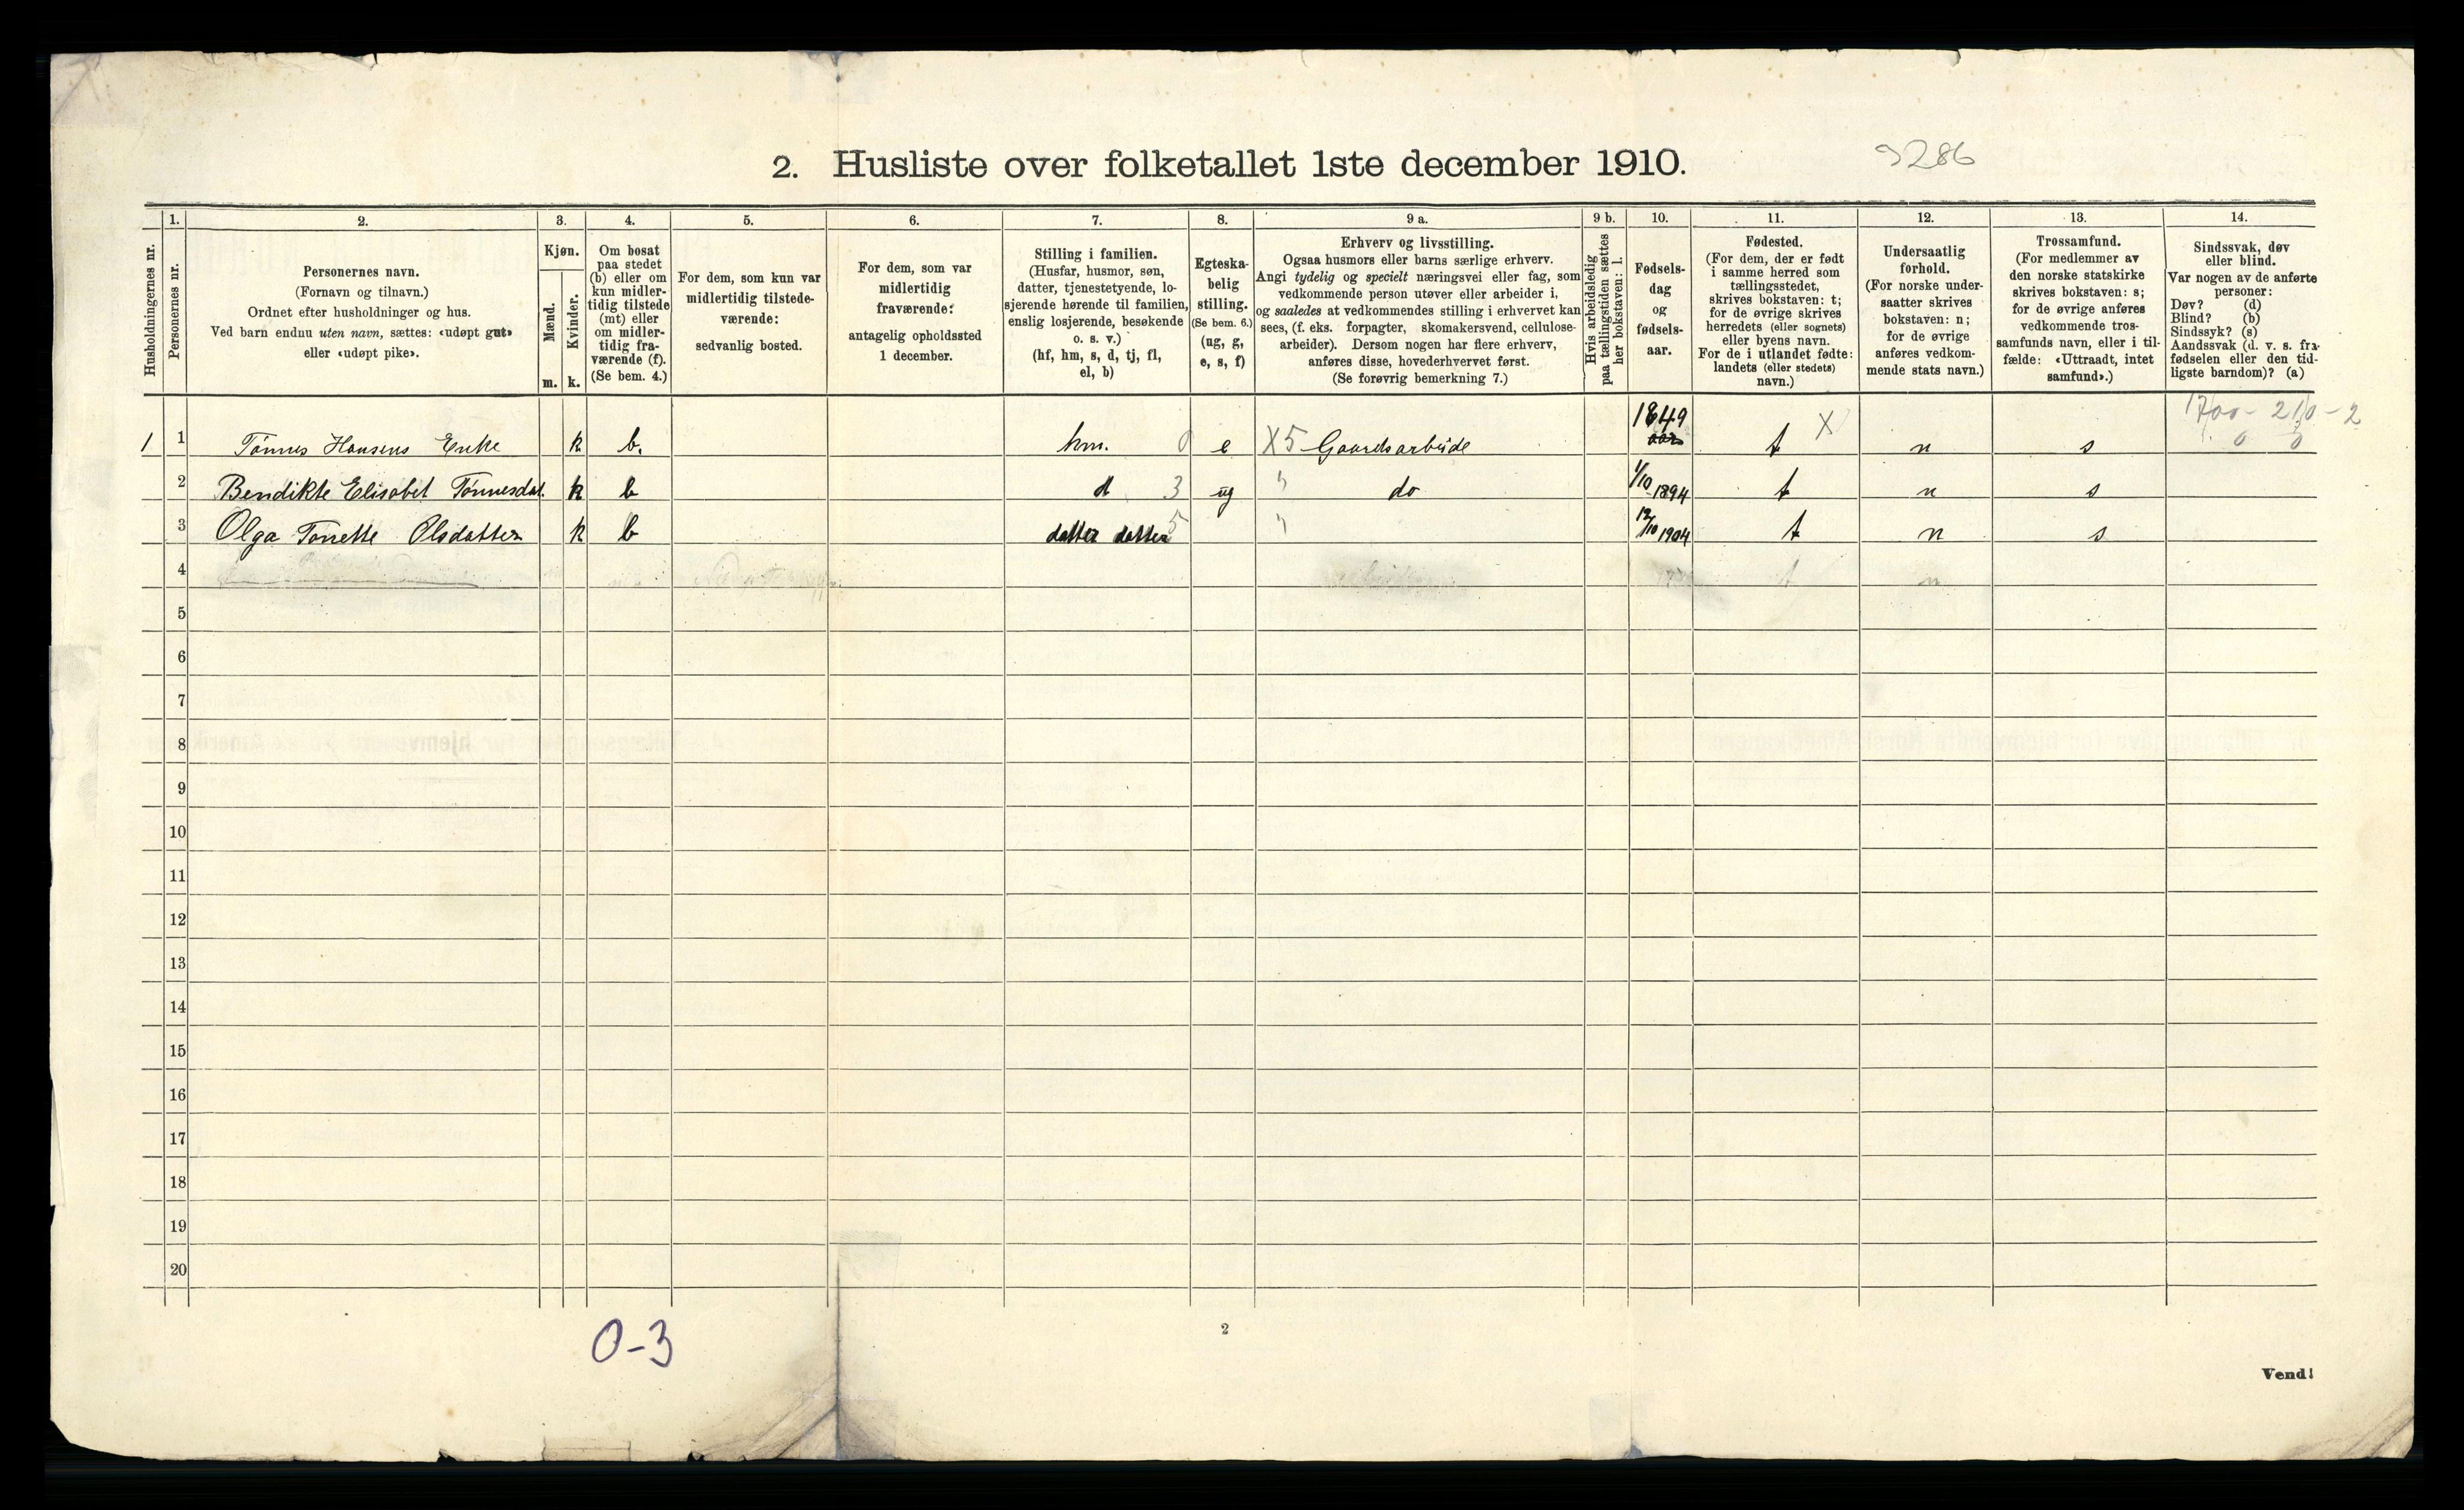 2. Husliste over folketallet 1ste december 1910.
3286
Husholdningernes nr.
1.
Personernes nr.
2.
Personernes navn.
(Fornavn og tilnavn.)
Ordnet efter husholdninger og hus.
Ved barn endnu uten navn, sættes: «udøpt gut»
eller «udøpt pike».
3.
Kjøn.
Mænd.
m.
Kvinder.
k.
4.
Om bosat
paa stedet
(b) eller om
kun midler-
tidig tilstede
(mt) eller
om midler-
tidig fra-
værende (f).
(Se bem. 4.)
5.
For dem, som kun var
midlertidig tilstede-
værende:
sedvanlig bosted.
6.
For dem, som var
midlertidig
fraværende:
antagelig opholdssted
1 december.
7.
Stilling i familien.
(Husfar, husmor, søn,
datter, tjenestetyende, lo-
sjerende hørende til familien,
enslig losjerende, besøkende
o. s. v.)
(hf, hm, s, d, tj, fl,
el, b)
8.
Egteska-
belig
stilling.
(Se bem. 6.)
(ug, g,
e, s, f)
9 a.
Erhverv og livsstilling.
Ogsaa husmors eller barns særlige erhverv.
Angi tydelig og specielt næringsvei eller fag, som
vedkommende person utøver eller arbeider i,
og saaledes at vedkommendes stilling i erhvervet kan
sees, (f. eks. forpagter, skomakersvend, cellulose-
arbeider). Dersom nogen har flere erhverv,
anføres disse, hovederhvervet først.
(Se forøvrig bemerkning 7.)
9 b.
Hvis arbeidsledig
paa tællingstiden sættes
her bokstaven: l.
10.
Fødsels-
dag
og
fødsels-
aar.
11.
Fødested.
(For dem, der er født
i samme herred som
tællingsstedet,
skrives bokstaven: t;
for de øvrige skrives
herredets (eller sognets)
eller byens navn.
For de i utlandet fødte:
landets (eller stedets)
navn.)
12.
Undersaatlig
forhold.
(For norske under-
saatter skrives
bokstaven: n;
for de øvrige
anføres vedkom-
mende stats navn.)
13.
Trossamfund.
(For medlemmer av
den norske statskirke
skrives bokstaven: s;
for de øvrige anføres
vedkommende tros-
samfunds navn, eller i til-
fælde: «Uttraadt, intet
samfund».)
14.
Sindssvak, døv
eller blind.
Var nogen av de anførte
personer:
Døv? (d)
Blind? (b)
Sindssyk? (s)
Aandssvak (d. v. s. fra
fødselen eller den tid-
ligste barndom)? (a)
1700 - 210 - 2
0 0
1 1 Tønnes Hansens Enke k b. hm. 0 e X5 Gaardsarbeide 1849 t X n s
2 Bendikte Elisabet Tønnesdat. k b d 3 ug " do 1/10 1894 t n s
3 Olga Tonette Olsdatter k b datter datter 5 " 12/10 1904 t n s
4 t n
5
6
7
8
9
10
11
12
13
14
15
16
17
18
19
20
0-3
2
Vend!